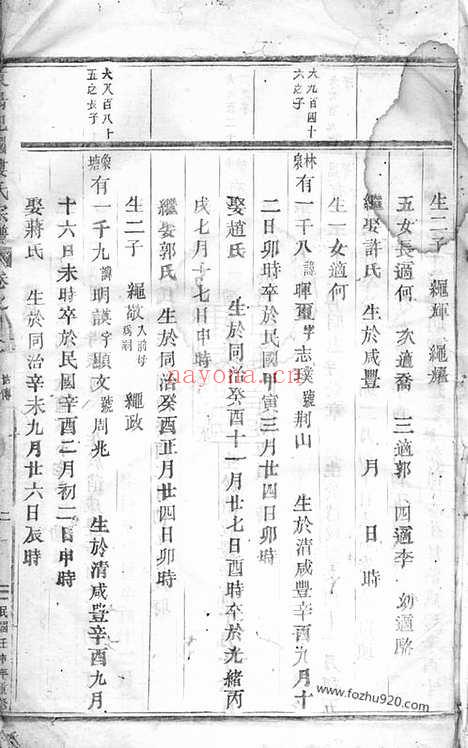 生二子 繩輝 繩耀
五女長適何 次適喬 三適郭 四適李 幼適駱
繼娶許氏 生於咸豐 月 日 時
生一女適何
大九百四十
六之子
林泉 有一千八 諱暉璽 字志璞 號荆山 生於清咸豐辛酉九月十
二日卯時卒於民國甲寅三月廿四日卯時
娶趙氏 生於同治癸酉十一月廿七日酉時卒於光緒丙
戌七月十七日申時
繼娶郭氏 生於同治癸酉正月廿四日卯時
生二子 繩敬 入前母為嗣 繩政
大又百八十
五之長子
象塘 有一千九 諱明謨 字顯文 號周兆 生於清咸豐辛酉九月
十六日未時卒於民國辛酉二月初二日申時
娶蔣氏 生於同治辛未九月廿六日辰時
氏宗譜
二
民國壬申年重修
nayona.cn
www.fozhu920.com